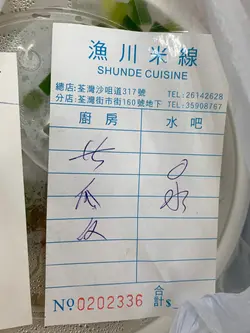 漁川米線
SHUNDE CUISINE
總店:荃灣沙咀道317號 TEL:26142628
分店:荃灣街市街160號地下 TEL:35908767
廚房 水吧
No 0202336 合計$